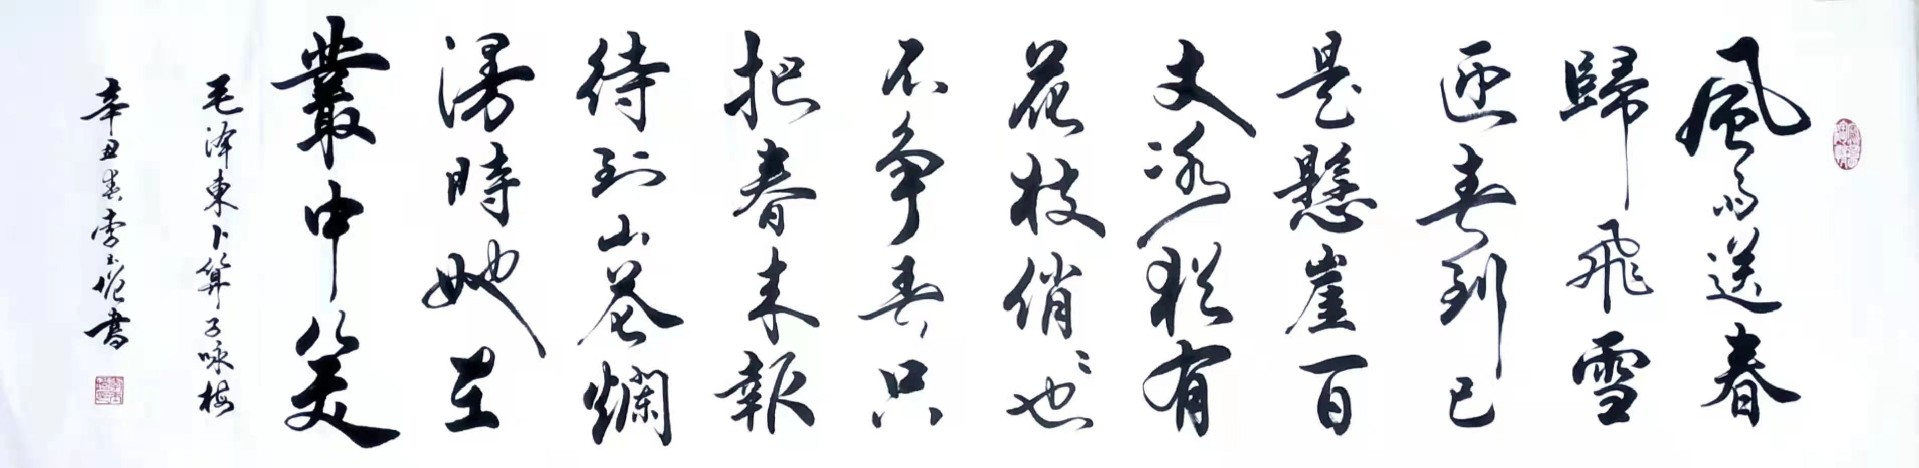 風雨送春
歸飛雪
迎春到已
是懸崖百
丈冰猶有
花枝俏〻也
不争春只
把春来報
待到山花爛
漫時她在
叢中笑
毛泽東卜算子咏梅
辛丑春李玉俊書